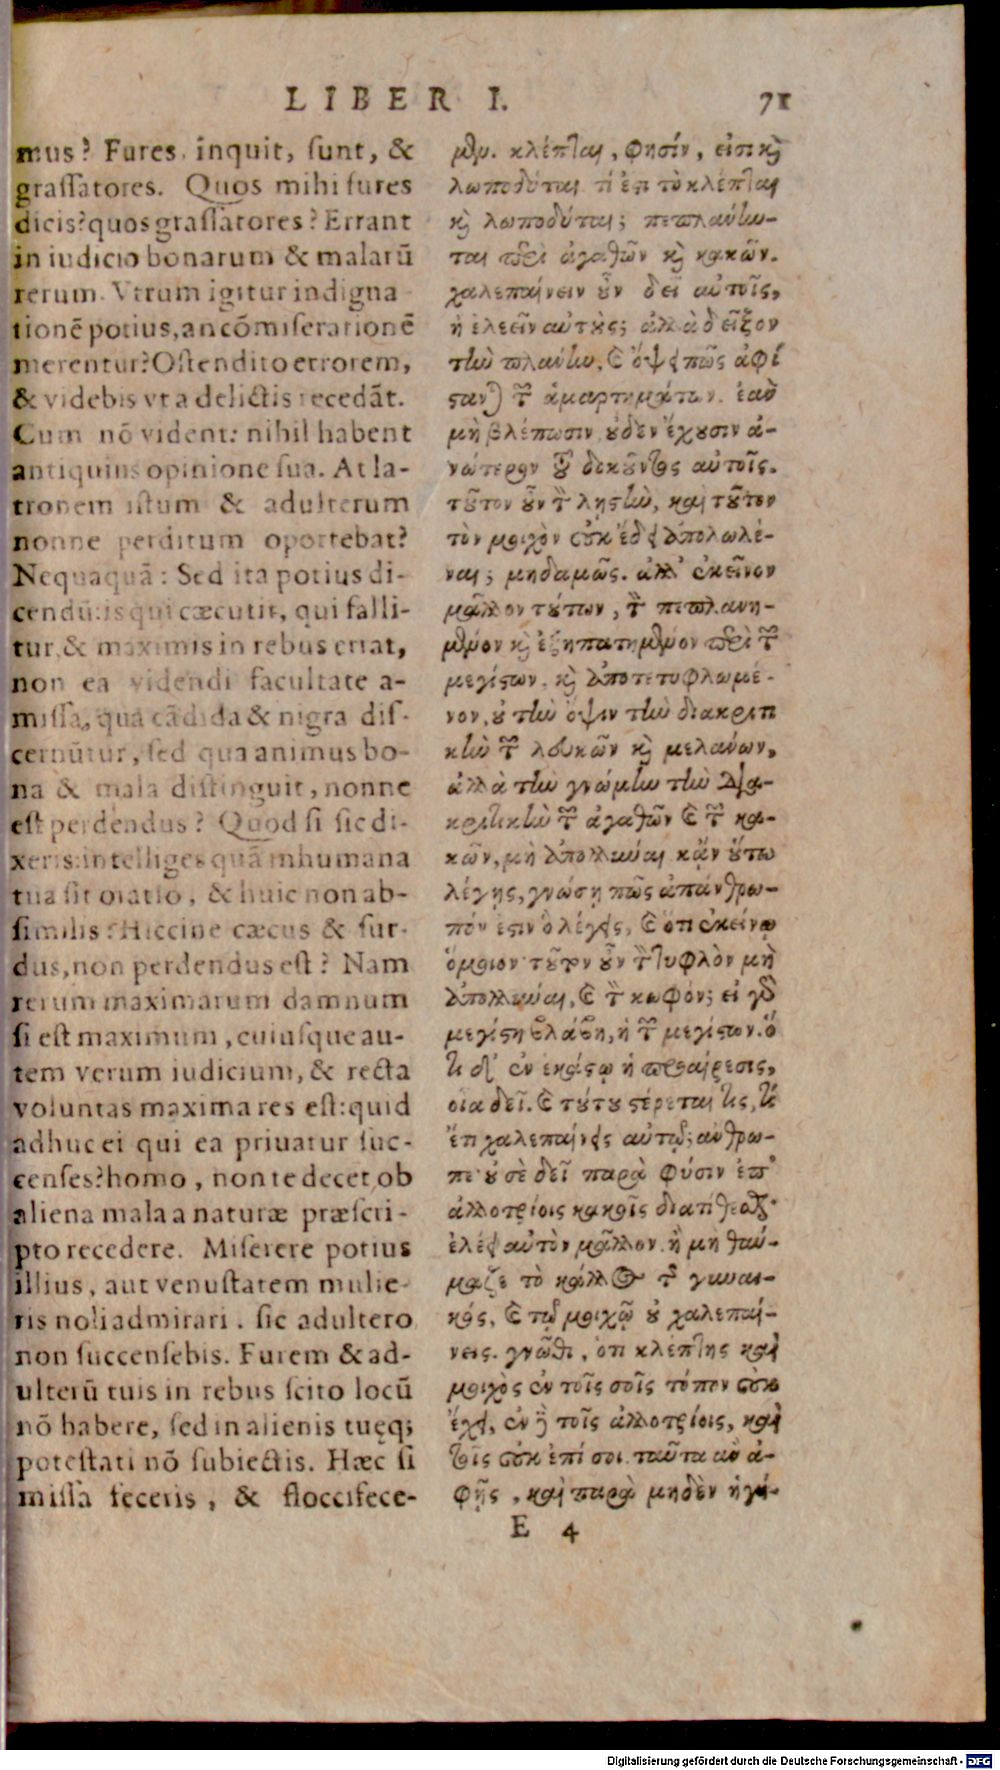 LIBER I. 71
mus? Fures, inquit, ſunt, &
graſſatores. Quos mihi fures
dicis? quos graſſatores? Errant
in iudicio bonarum & malarũ
rerum. Vtrum igitur indigna
tionẽ potius, an cõmiſerationẽ
merentur? Oſtendito errorem,
& videbis vt a delictis recedãt.
Cum nõ vident: nihil habent
antiquius opinione ſua. At la-
tronem iſtum & adulterum
nonne perditum oportebat?
Nequaquã: Sed ita potius di-
cendũ: is qui cæcutit, qui falli-
tur, & maximis in rebus errat,
non ea videndi facultate a-
miſſa, qua cãdida & nigra diſ-
cernũtur, ſed qua animus bo-
na & mala diſtinguit, nonne
eſt perdendus? Quod ſi ſic di-
xeris: intelliges quã inhumana
tua ſit oratio, & huic non ab-
ſimilis: Hiccine cæcus & ſur-
dus, non perdendus eſt? Nam
rerum maximarum damnum
ſi eſt maximum, cuiuſque au-
tem verum iudicium, & recta
voluntas maxima res eſt: quid
adhuc ei qui ea priuatur ſuc-
cenſes? homo, non te decet ob
aliena mala a naturæ præſcri-
pto recedere. Miſerere potius
illius, aut venuſtatem mulie-
ris noli admirari. ſic adultero
non ſuccenſebis. Furem & ad-
ulterũ tuis in rebus ſcito locũ
nõ habere, ſed in alienis tuęq;
poteſtati nõ ſubiectis. Hæc ſi
miſſa feceris, & floccifece-
μθρ. κλέπται, φησίν, εἰσι καὶ
λωποδύται τί ἐστι τὸ κλέπται
καὶ λωποδύται; πεπλάνην-
ται περὶ ἀγαθῶν καὶ κακῶν.
χαλεπαίνειν οὖν δεῖ αὐτοῖς,
ἢ ἐλεεῖν αὐτούς; ἀλλὰ δεῖξον
τὴν πλάνην, καὶ ὄψει πῶς ἀφί
στανται τῶν ἁμαρτημάτων. ἐὰν δὲ
μὴ βλέπωσιν, οὐδὲν ἔχουσιν ἀ-
νώτερον τοῦ δοκοῦντος αὐτοῖς.
τοῦτον οὖν τὸν λῃστὴν, καὶ τοῦτον
τὸν μοιχὸν οὐκ ἔδει ἀπολωλέ-
ναι; μηδαμῶς. ἀλλ' ἐκεῖνον
μᾶλλον τούτων, τὸν πεπλανη-
μένον καὶ ἐξηπατημένον περὶ τῶν
μεγίστων, καὶ ἀποτετυφλωμέ-
νον, οὐ τὴν ὄψιν τὴν διακριτι
κὴν τῶν λευκῶν καὶ μελάνων,
ἀλλὰ τὴν γνώμην τὴν δια-
κριτικὴν τῶν ἀγαθῶν καὶ τῶν κα-
κῶν, μὴ ἀπολλύναι κἂν οὕτω
λέγῃς, γνώσῃ πῶς ἀπάνθρω-
πόν ἐστιν ὃ λέγεις, καὶ ὅτι ἐκείνῳ
ὅμοιον· τοῦτον οὖν τὸν τυφλὸν μὴ
ἀπολλύναι, καὶ τὸν κωφόν; εἰ γὰρ
μεγίστη βλάβη, ἡ τῶν μεγίστων. ὅ
τι δ' ἐν ἑκάστῳ ἡ προαίρεσις,
οἵα δεῖ. καὶ τούτου στέρεταί τις, τί
ἔτι χαλεπαίνεις αὐτῷ; ἄνθρω-
πε οὐ σὲ δεῖ παρὰ φύσιν ἐπ'
ἀλλοτρίοις κακοῖς διατίθεσθαι·
ἐλέει αὐτὸν μᾶλλον. ἢ μὴ θαύ-
μαζε τὸ κάλλος τῆς γυναι-
κός, καὶ τῷ μοιχῷ οὐ χαλεπαί-
νεις. γνῶθι, ὅτι κλέπτης καὶ
μοιχὸς ἐν τοῖς σοῖς τόπον οὐκ
ἔχει, ἐν δὲ τοῖς ἀλλοτρίοις, καὶ
τοῖς οὐκ ἐπί σοι. ταῦτα ἂν ἀ-
φῇς, καὶ παρὰ μηδὲν ἡγή-
E 4
Digitalisierung gefördert durch die Deutsche Forschungsgemeinschaft - DFG